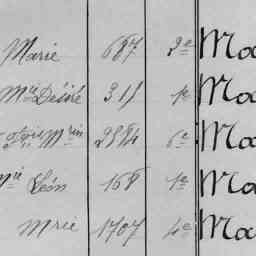 Marie 687 2e Ma
Mie Désiré 311 1e Ma
Min 2884 6e Ma
Mie Léon 168 1e Ma
Mrie 1707 4e Ma